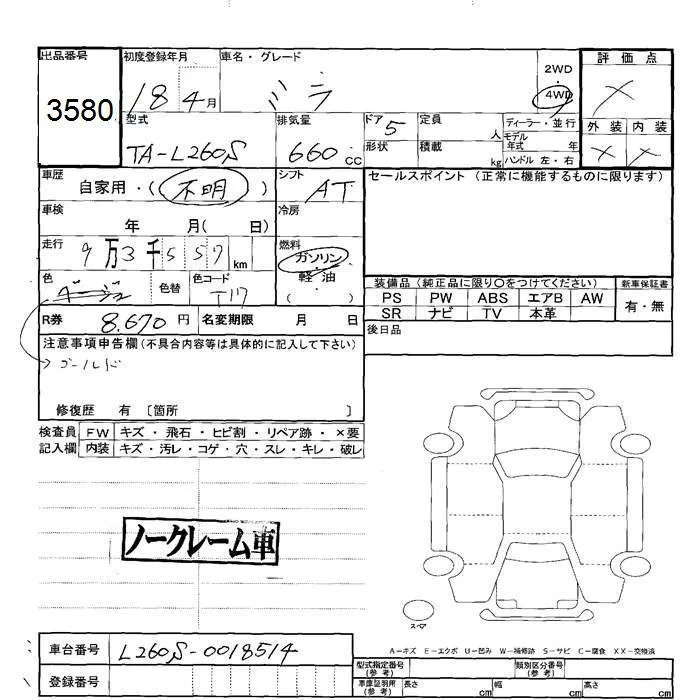 出品番号 初度登録年月 車名・グレード 2WD 4WD 評価点
3580 18 4月 ミラ ×
型式 排気量 ドア 定員 ディーラー・並行 外装 内装
TA-L260S 660cc 5 人 モデル年式 年 × ×
形状 積載 kg ハンドル 左・右
車歴 自家用・(不明) シフト AT セールスポイント (正常に機能するものに限ります)
車検 年 月( 日) 冷房
走行 9万3千557km 燃料 ガソリン 軽・油 ( )
色 ベージュ 色替 色コード 装備品 (純正品に限り○をつけてください) 新車保証書
PS PW ABS エアB AW 有・無
SR ナビ TV 本革
R券 8,670円 名変期限 月 日 後日品
注意事項申告欄 (不具合内容等は具体的に記入して下さい)
→ゴールド
修復歴 有 〔箇所 〕
検査員 FW キズ・飛石・ヒビ割・リペア跡・×要
記入欄 内装 キズ・汚レ・コゲ・穴・スレ・キレ・破レ
ノークレーム車
スペア
A-キズ E-エクボ U-凹み W-補修跡 S-サビ C-腐食 XX-交換済
車台番号 L260S-0018514
登録番号
型式指定番号 (参考) 類別区分番号 (参考)
車庫証明用 (参考) 長さ cm 幅 cm 高さ cm